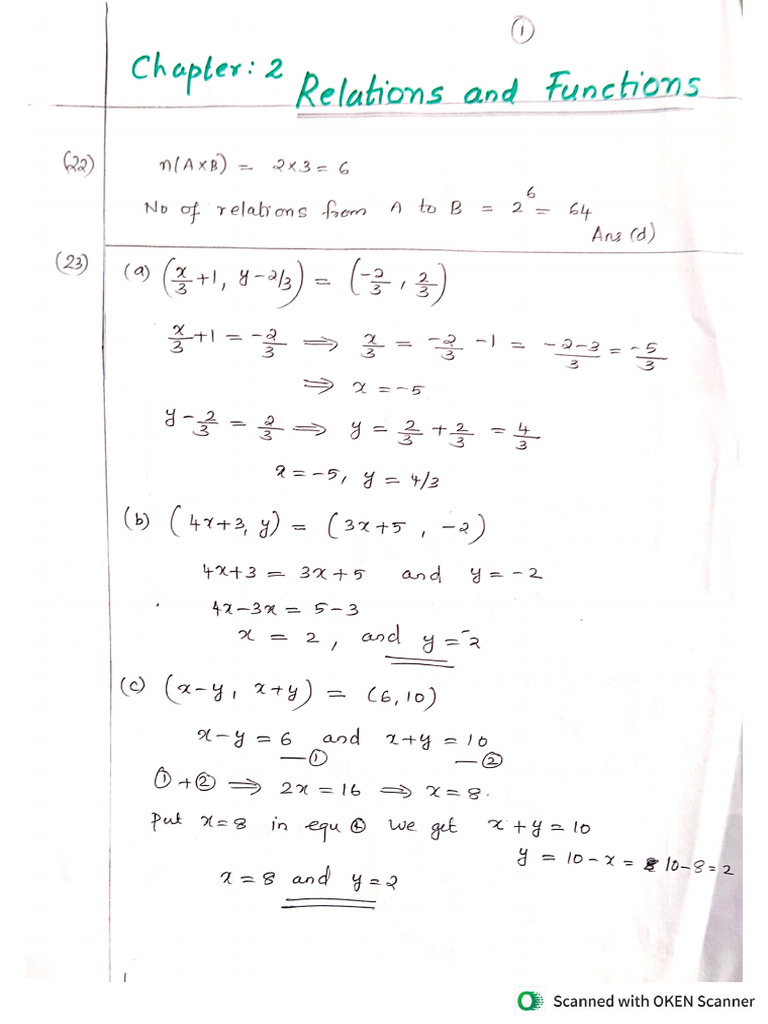 ①
Chapter: 2 Relations and Functions
(22) n(A×B) = 2×3 = 6
No of relations from A to B = 2^6 = 64
Ans (d)
(23) (a) (x/3 +1, y-2/3) = (-2/3, 2/3)
x/3 +1 = -2/3 ⟹ x/3 = -2/3 -1 = -2-3/3 = -5/3
⟹ x = -5
y - 2/3 = 2/3 ⟹ y = 2/3 + 2/3 = 4/3
x = -5, y = 4/3
(b) (4x+3, y) = (3x+5, -2)
4x+3 = 3x+5 and y = -2
4x-3x = 5-3
x = 2, and y = -2
(c) (x-y, x+y) = (6,10)
x-y = 6 and x+y = 10
—① —②
①+② ⟹ 2x = 16 ⟹ x = 8.
Put x=8 in equ ② we get x+y = 10
y = 10-x = 10-8 = 2
x = 8 and y = 2
Scanned with OKEN Scanner